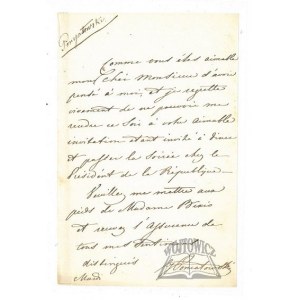 Poniatowski
Comme vous êtes aimable
mon cher Monsieur d'avoir
pensé à moi, et je regrette
vivement de ne pouvoir me
rendre ce Soir à votre aimable
invitation étant invité à diner
et passer la Soirée chez le
Président de la République.
Veuillez me mettre aux
pieds de Madame
et recevez l'Assurance de
tous mes Sentimens
distingués
Poniatowski
Mardi
WÓJTOWICZ